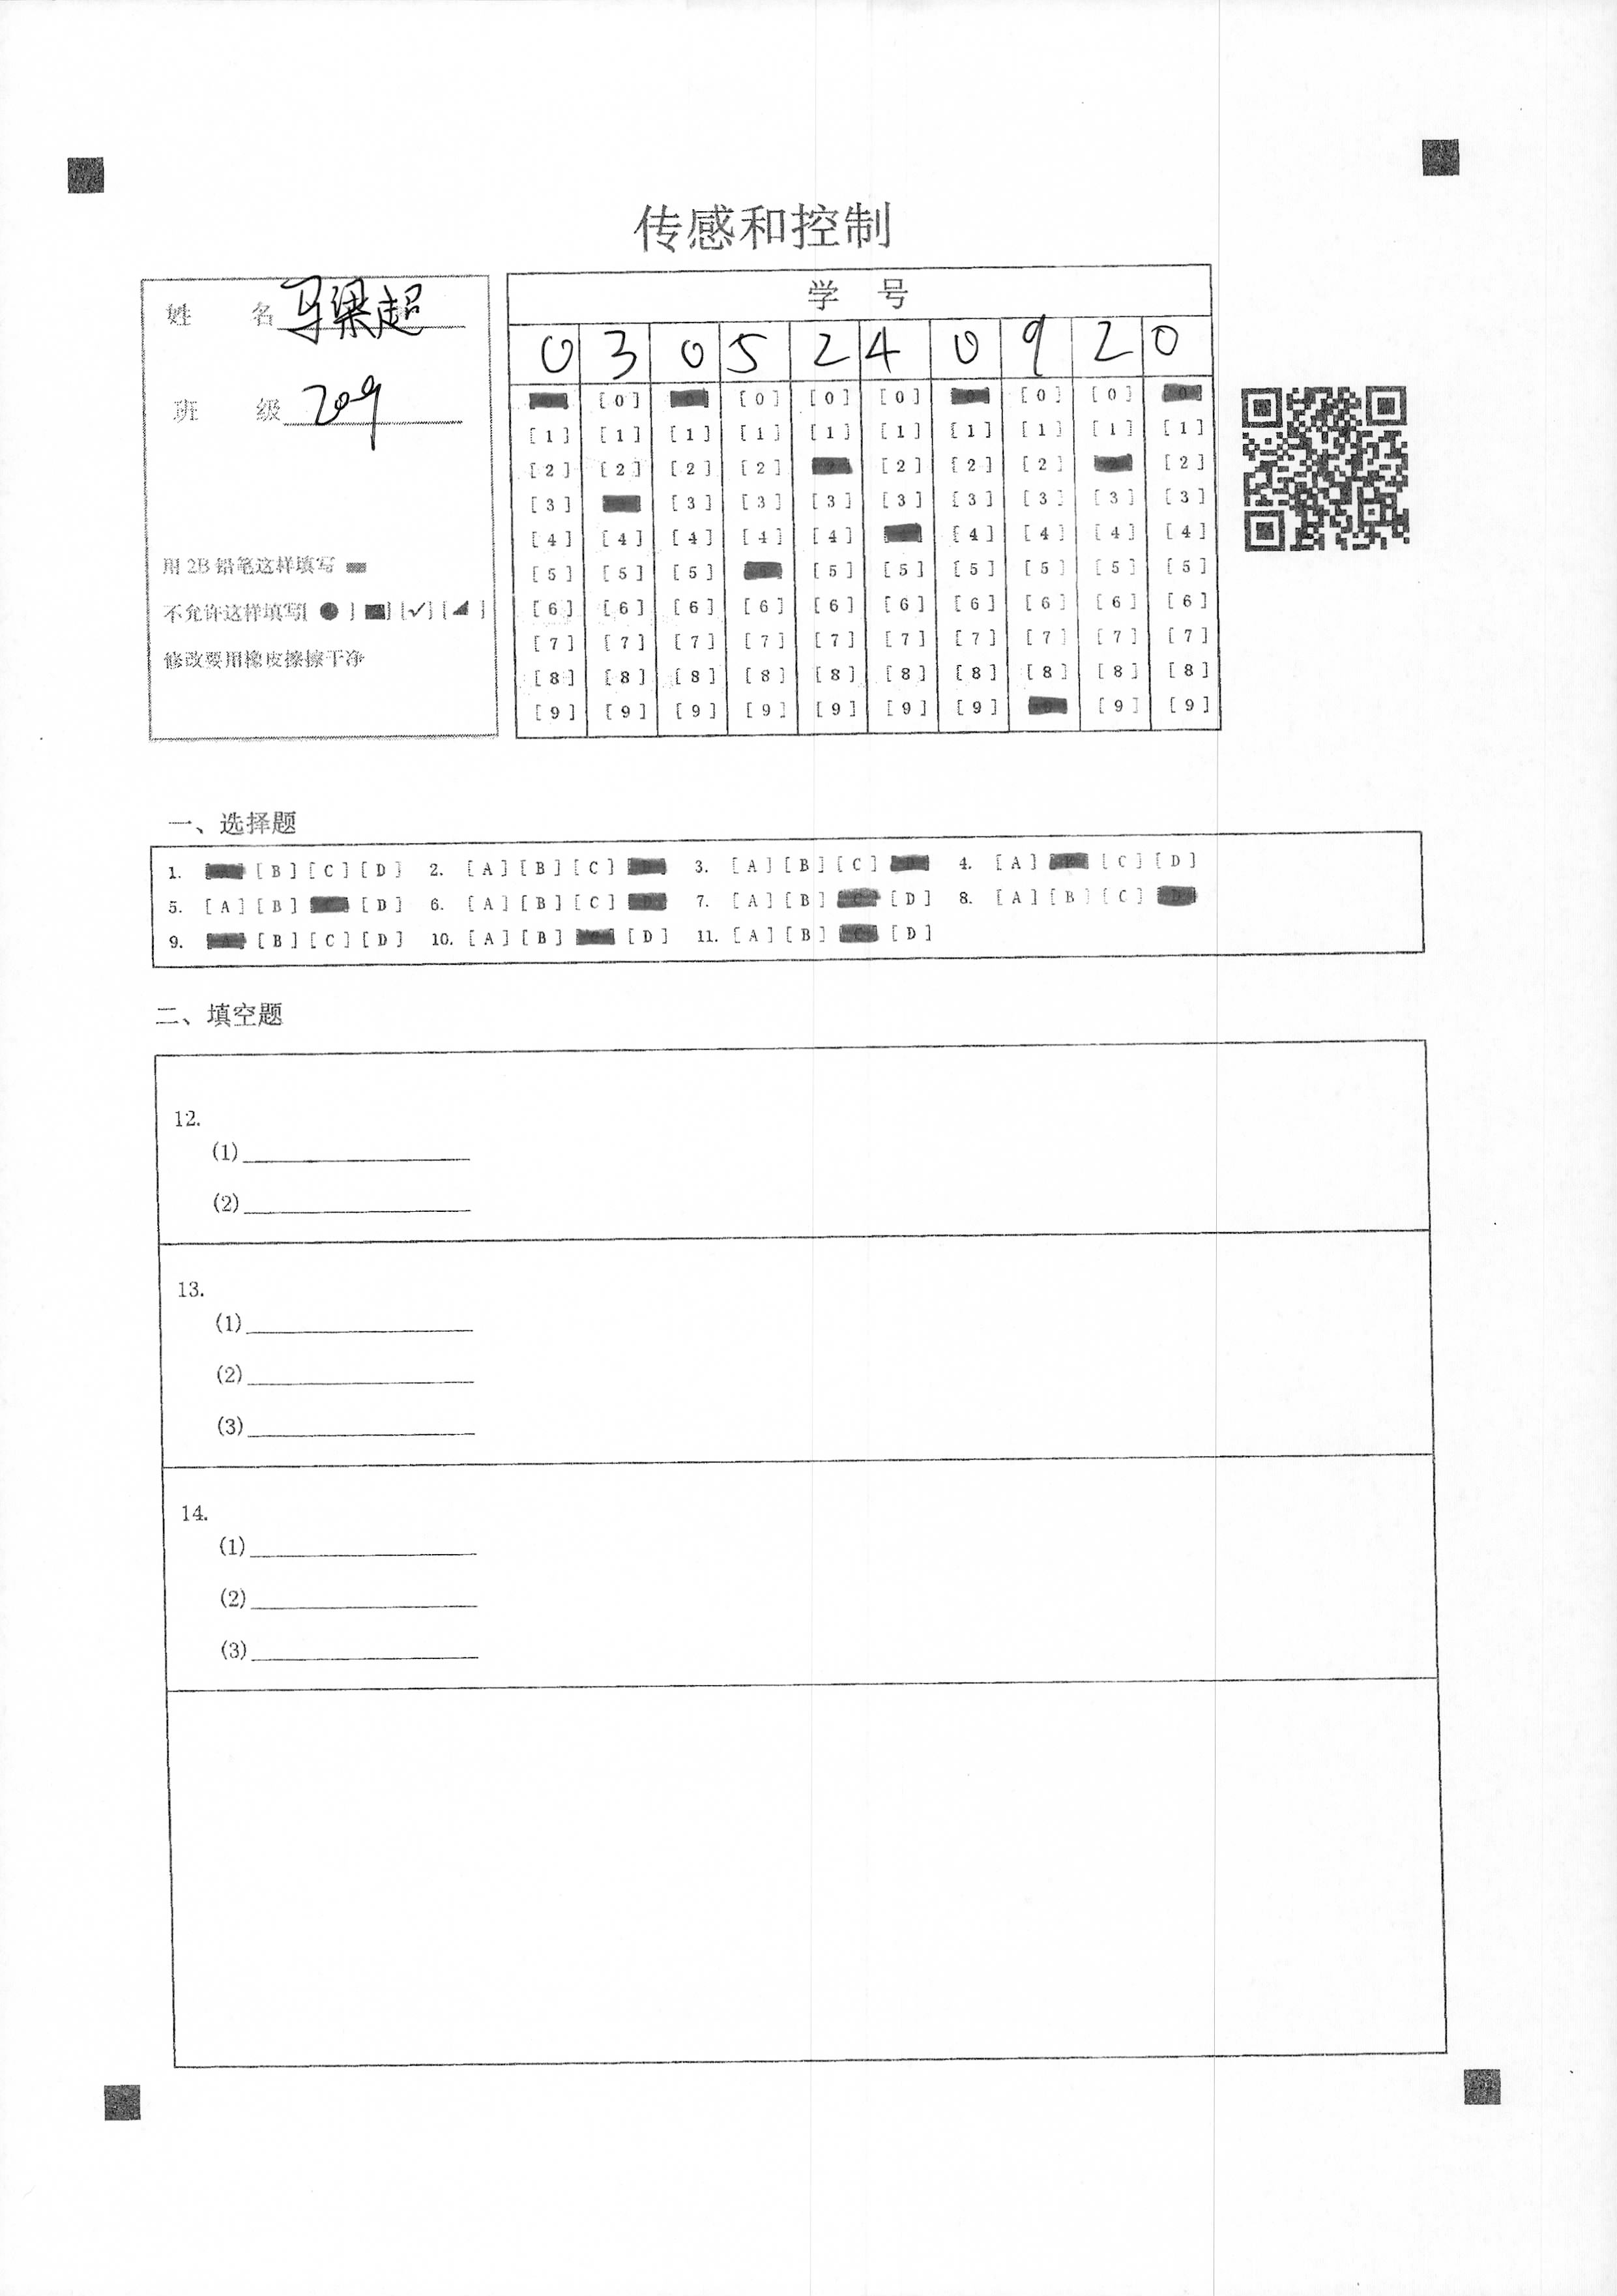 传感和控制
姓 名 马梁超
班 级 209
用 2B 铅笔这样填写
不允许这样填写[ ● ] [■] [✓] [◢ ]
修改要用橡皮擦擦干净
学 号
0 3 0 5 2 4 0 9 2 0
[0] [0] [0] [0] [0] [0]
[1] [1] [1] [1] [1] [1] [1] [1] [1] [1]
[2] [2] [2] [2] [2] [2] [2] [2]
[3] [3] [3] [3] [3] [3] [3] [3] [3]
[4] [4] [4] [4] [4] [4] [4] [4] [4]
[5] [5] [5] [5] [5] [5] [5] [5] [5]
[6] [6] [6] [6] [6] [6] [6] [6] [6] [6]
[7] [7] [7] [7] [7] [7] [7] [7] [7] [7]
[8] [8] [8] [8] [8] [8] [8] [8] [8] [8]
[9] [9] [9] [9] [9] [9] [9] [9] [9]
一、选择题
1. [B] [C] [D] 2. [A] [B] [C] 3. [A] [B] [C] 4. [A] [C] [D]
5. [A] [B] [D] 6. [A] [B] [C] 7. [A] [B] [D] 8. [A] [B] [C]
9. [B] [C] [D] 10. [A] [B] [D] 11. [A] [B] [D]
二、填空题
12.
(1)
(2)
13.
(1)
(2)
(3)
14.
(1)
(2)
(3)